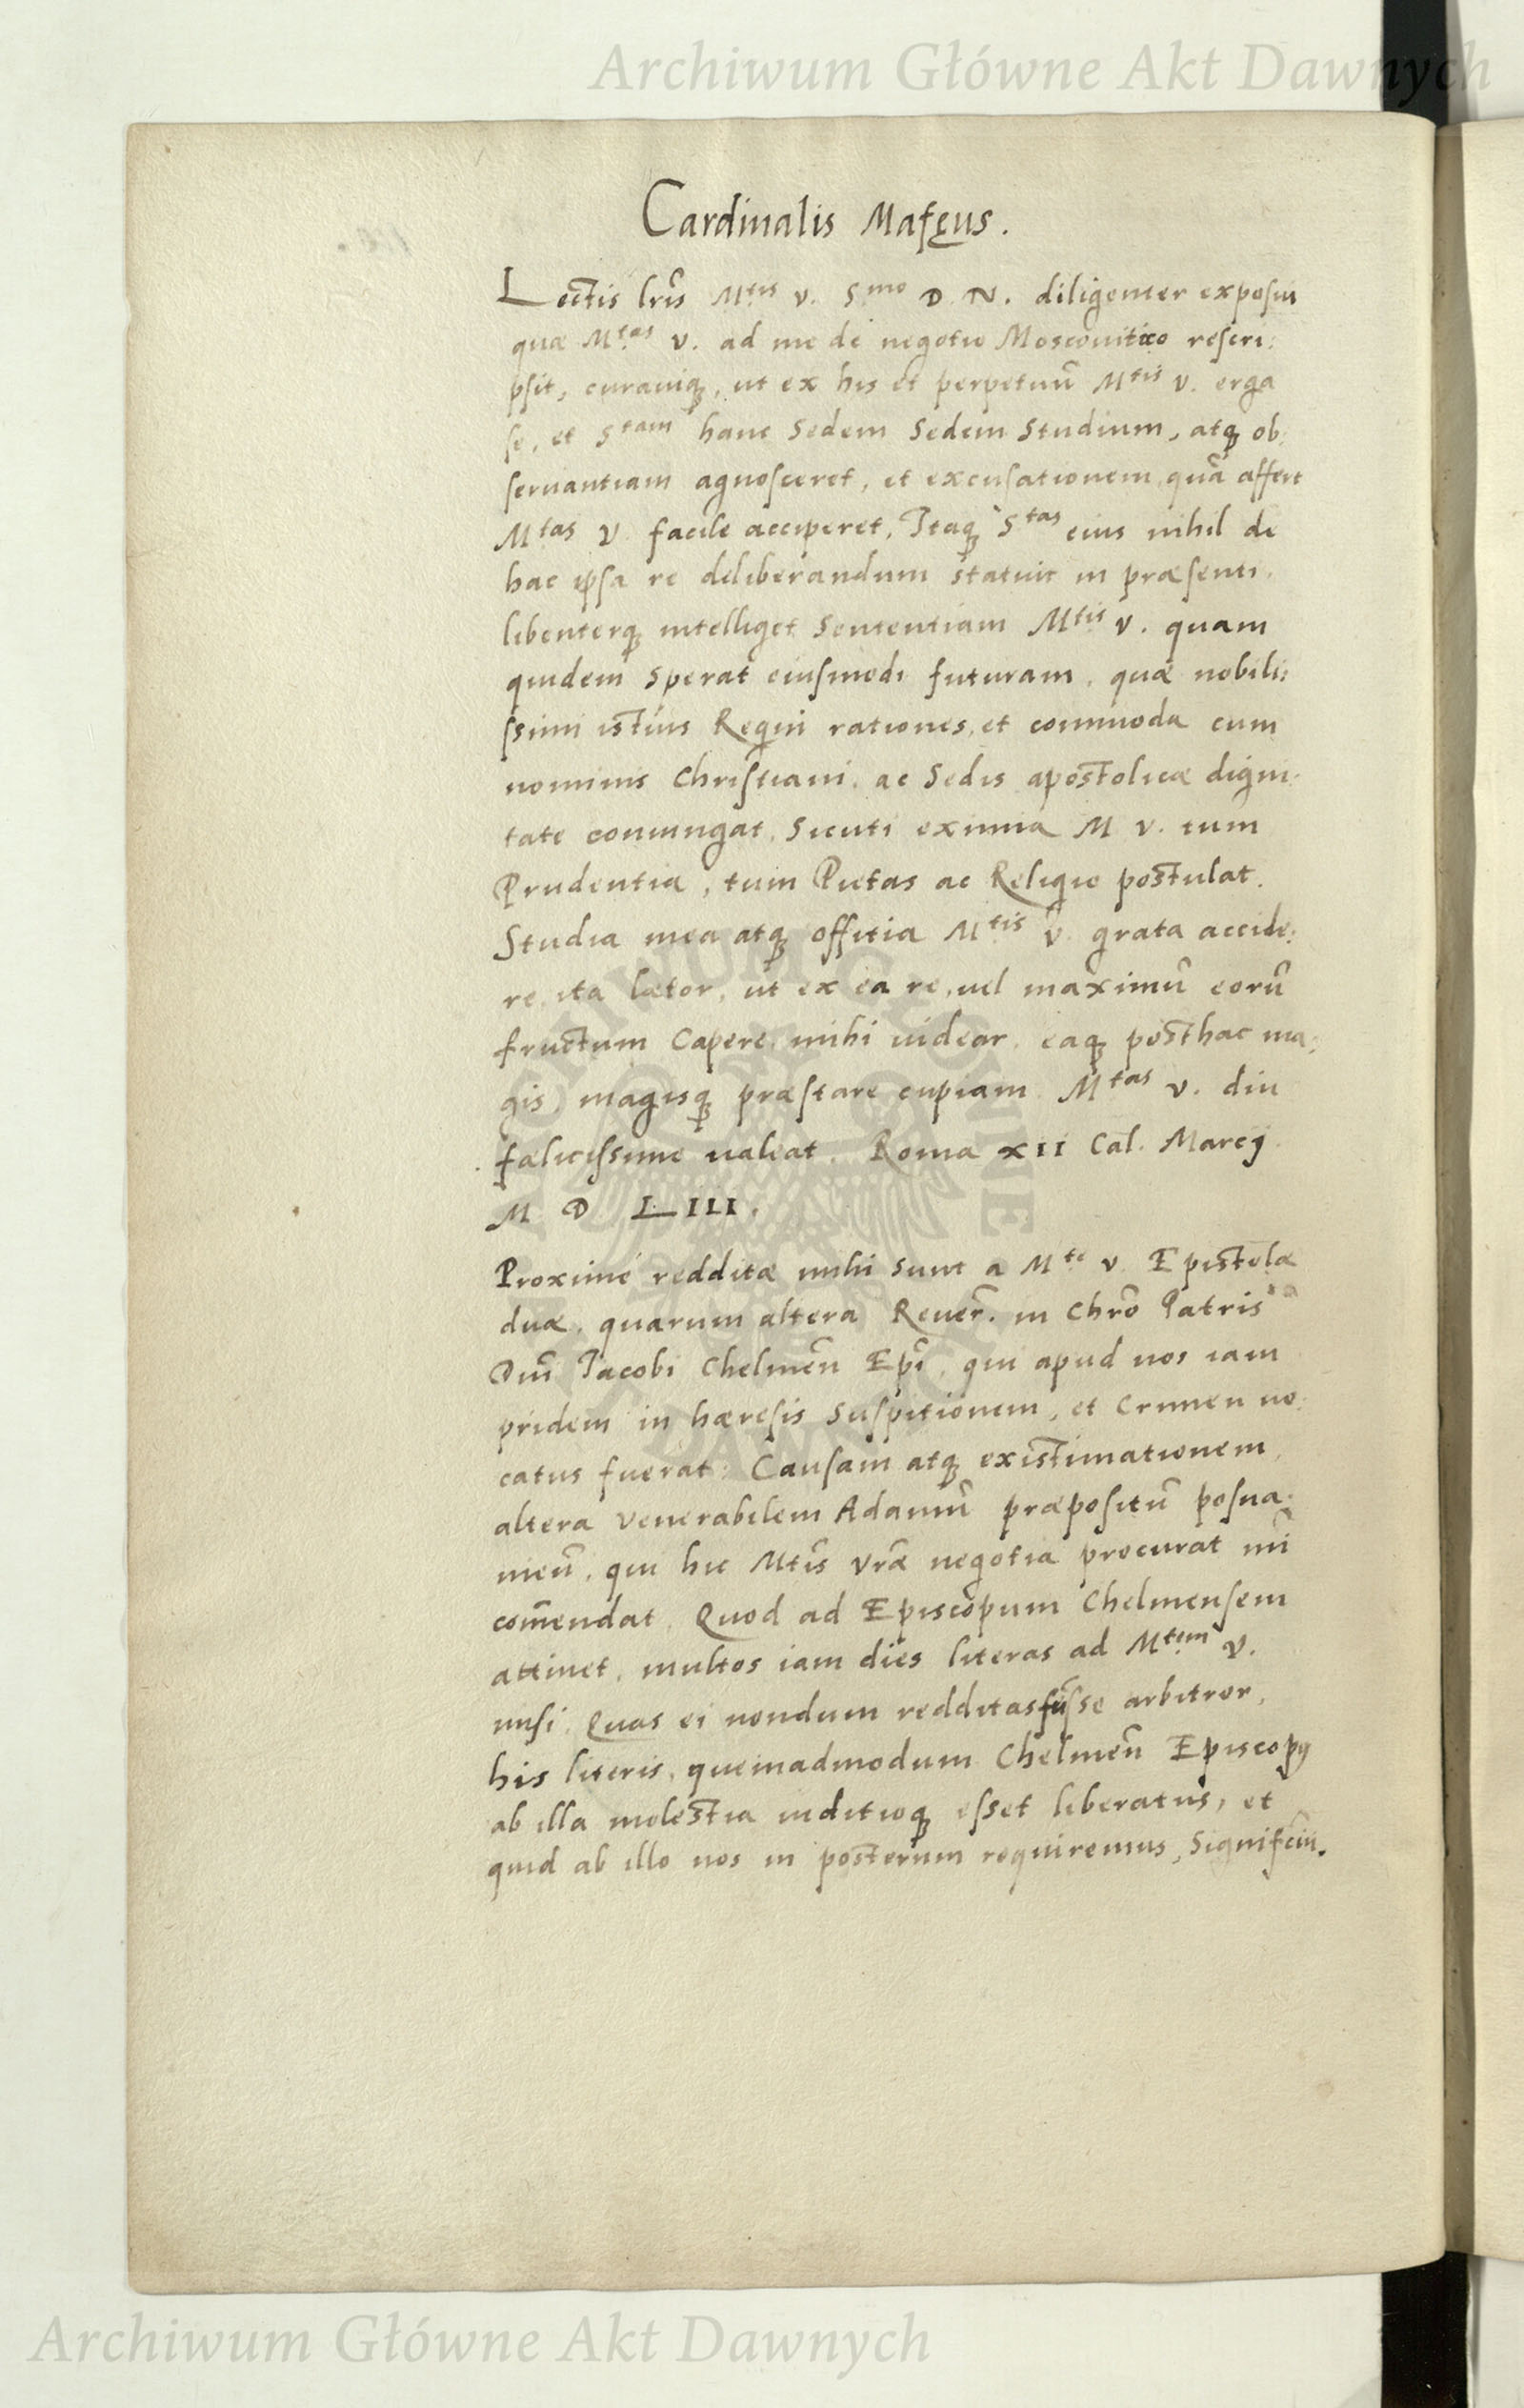 Archiwum Główne Akt Dawnych
Cardinalis Mafęus.
Lectis lr̃is Mtis v. Smo D. N. diligenter exposui
quæ Mtas v. ad me de negotio Moscouitico rescri:
psit, curauiq, ut ex his et perpetuũ Mtis v. erga
se, et Stam hanc Sedem Sedem Studium, atq ob:
seruantiam agnosceret, et excusationem, quã affert
Mtas V. facile acciperet. Itaq Stas eius nihil de
hac ipsa re deliberandum statuit in præsenti,
libenterq intelliget Sententiam Mtis v. quam
quidem Sperat eiusmodi futuram, quæ nobili:
ssimi istius Regni rationes, et commoda cum
nominis Christiani, ac Sedis apostolicæ digni:
tate coniungat, Sicuti eximia M v. tum
Prudentia, tum Pietas ac Religio postulat.
Studia mea atq offitia Mtis v. grata accide:
re, ita lætor, ut ex ea re, uel maximũ eorũ
fructum Capere mihi uidear, eaq posthac ma:
gis, magisq præstare cupiam Mtas v. diu
fælicissime ualeat. Roma XII Cal. Marcij
M D LIII.
Proxime redditæ mihi sunt a Mte v. Epistolæ
duæ, quarum altera Reuer̃. in Chrõ Patris
Dñi Jacobi Chelmeñ Epĩ, qui apud nos iam
pridem in hæresis Suspitionem, et Crimen uo:
catus fuerat: Causam atq existimationem,
altera Venerabilem Adamũ præpositũ posna:
nieñ, qui hic Mtis Vræ̃ negotia procurat mĩ
com̃endat. Quod ad Episcopum Chelmensem
attinet, multos iam dies literas ad Mtem V.
misi, Quas ei nondum redditas fuisse arbitror,
his literis, quemadmodum Chelmeñ Episcopq
ab illa molestia inditioq esset liberatus, et
quid ab illo nos in posterum requiremus, Signifcũi.
ARCHIWUM GŁÓWNE AKT DAWNYCH
Archiwum Główne Akt Dawnych